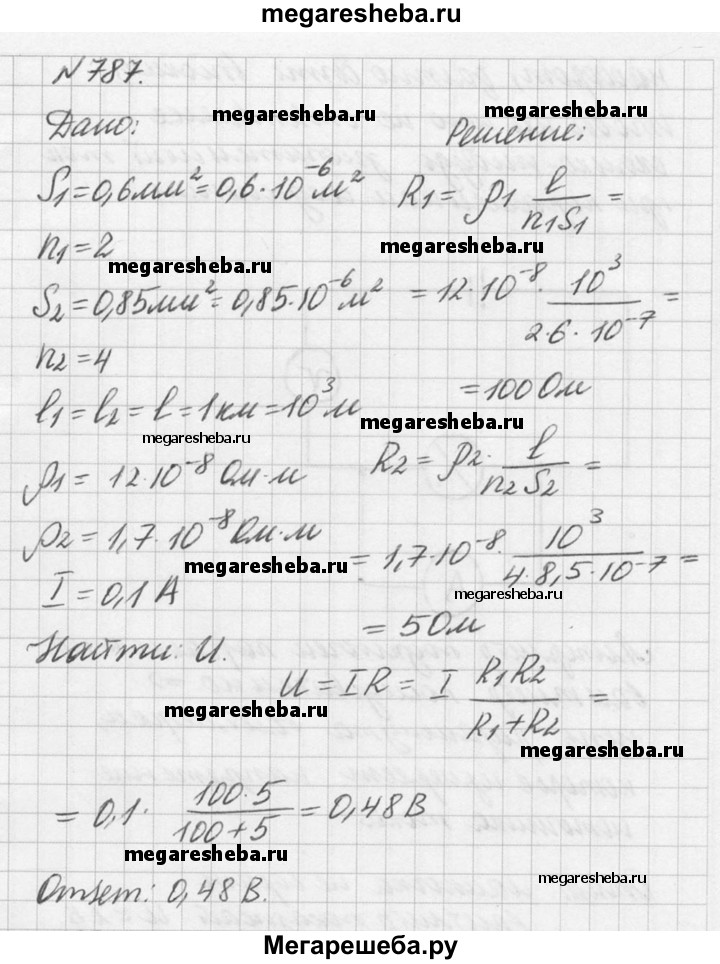 megaresheba.ru
№787.
Дано:
megaresheba.ru
megaresheba.ru
Решение:
S1=0,6мм²=0,6·10⁻⁶м²
R1=ρ1 l/n1S1 =
n1=2
megaresheba.ru
megaresheba.ru
S2=0,85мм²=0,85·10⁻⁶м²
=12·10⁻⁸·10³/2·6·10⁻⁷=
n2=4
=100Ом
l1=l2=l=1км=10³м
megaresheba.ru
megaresheba.ru
R2=ρ2·l/n2S2=
ρ1=12·10⁻⁸Ом·м
ρ2=1,7·10⁻⁸Ом·м
megaresheba.ru
=1,7·10⁻⁸·10³/4·8,5·10⁻⁷=
megaresheba.ru
I=0,1А
=5Ом
Найти: U.
U=IR=I R1R2/R1+R2=
megaresheba.ru
megaresheba.ru
=0,1·100·5/100+5=0,48В
megaresheba.ru
Ответ: 0,48В.
megaresheba.ru
Мегарешеба.ру